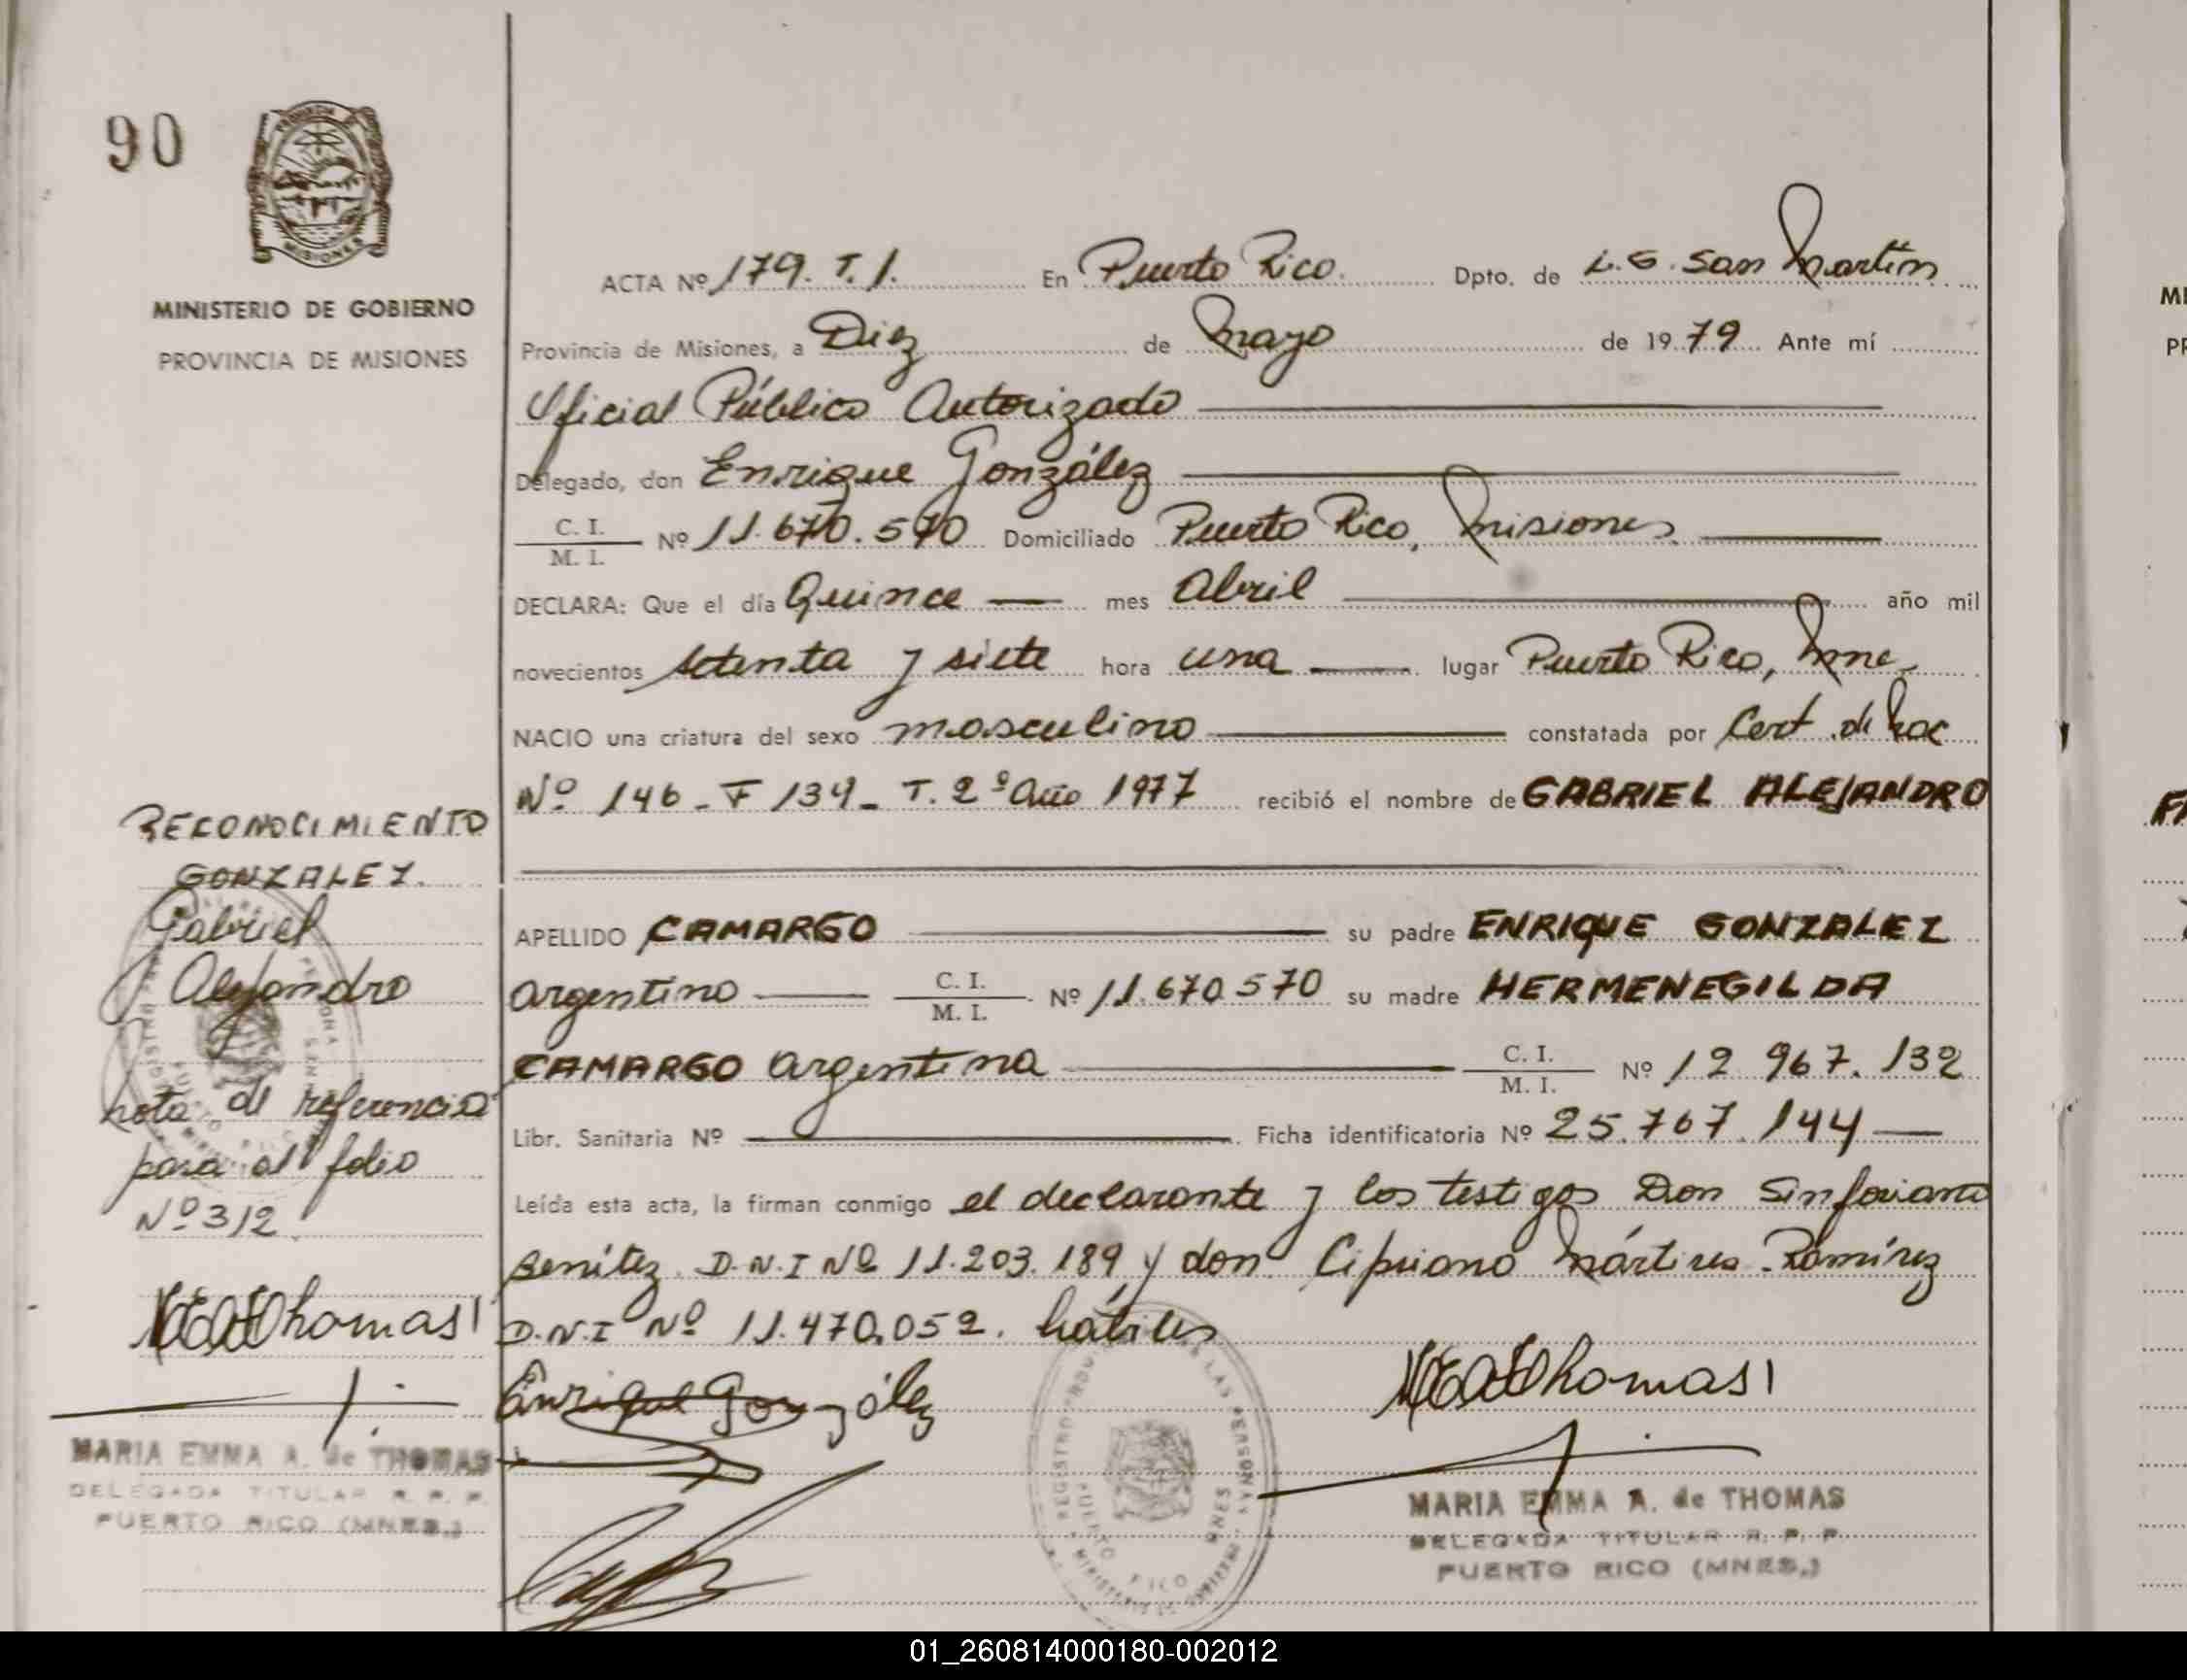 90
PROVINCIA DE
MISIONES
MINISTERIO DE GOBIERNO
PROVINCIA DE MISIONES
ACTA Nº 179. T. 1. En Puerto Rico. Dpto. de L.G. San Martín
Provincia de Misiones, a Diez de Mayo de 1979 Ante mí
Oficial Público Autorizado
Delegado, don Enrique González
C. I. / M. I. Nº 11.670.570 Domiciliado Puerto Rico, Misiones
DECLARA: Que el día Quince mes Abril año mil
novecientos setenta y siete hora una lugar Puerto Rico, Mnes
NACIO una criatura del sexo masculino constatada por Cert. de Nac
Nº 146 - F 134 - T. 2º Año 1977 recibió el nombre de GABRIEL ALEJANDRO
APELLIDO CAMARGO su padre ENRIQUE GONZALEZ
Argentino C. I. / M. I. Nº 11.670.570 su madre HERMENEGILDA
CAMARGO Argentina C. I. / M. I. Nº 12 967.132
Libr. Sanitaria Nº Ficha identificatoria Nº 25.767.144
Leída esta acta, la firman conmigo el declarante y los testigos Don Sinforiano
Benítez D.N.I Nº 11.203.189 y don Cipriano Mártires Ramírez
D.N.I Nº 11.470.052. hábiles
Enrique González
RECONOCIMIENTO
GONZALEZ.
Gabriel
Alejandro
nota de referencia
pasa al folio
Nº 312
MEAdThomas
MARIA EMMA A. de THOMAS
DELEGADA TITULAR R. P. P.
PUERTO RICO (MNES.)
MEAdThomas
MARIA EMMA A. de THOMAS
DELEGADA TITULAR R. P. P.
PUERTO RICO (MNES.)
REGISTRO PROV. DE LAS PERSONAS
PUERTO RICO
MISIONES
01_260814000180-002012